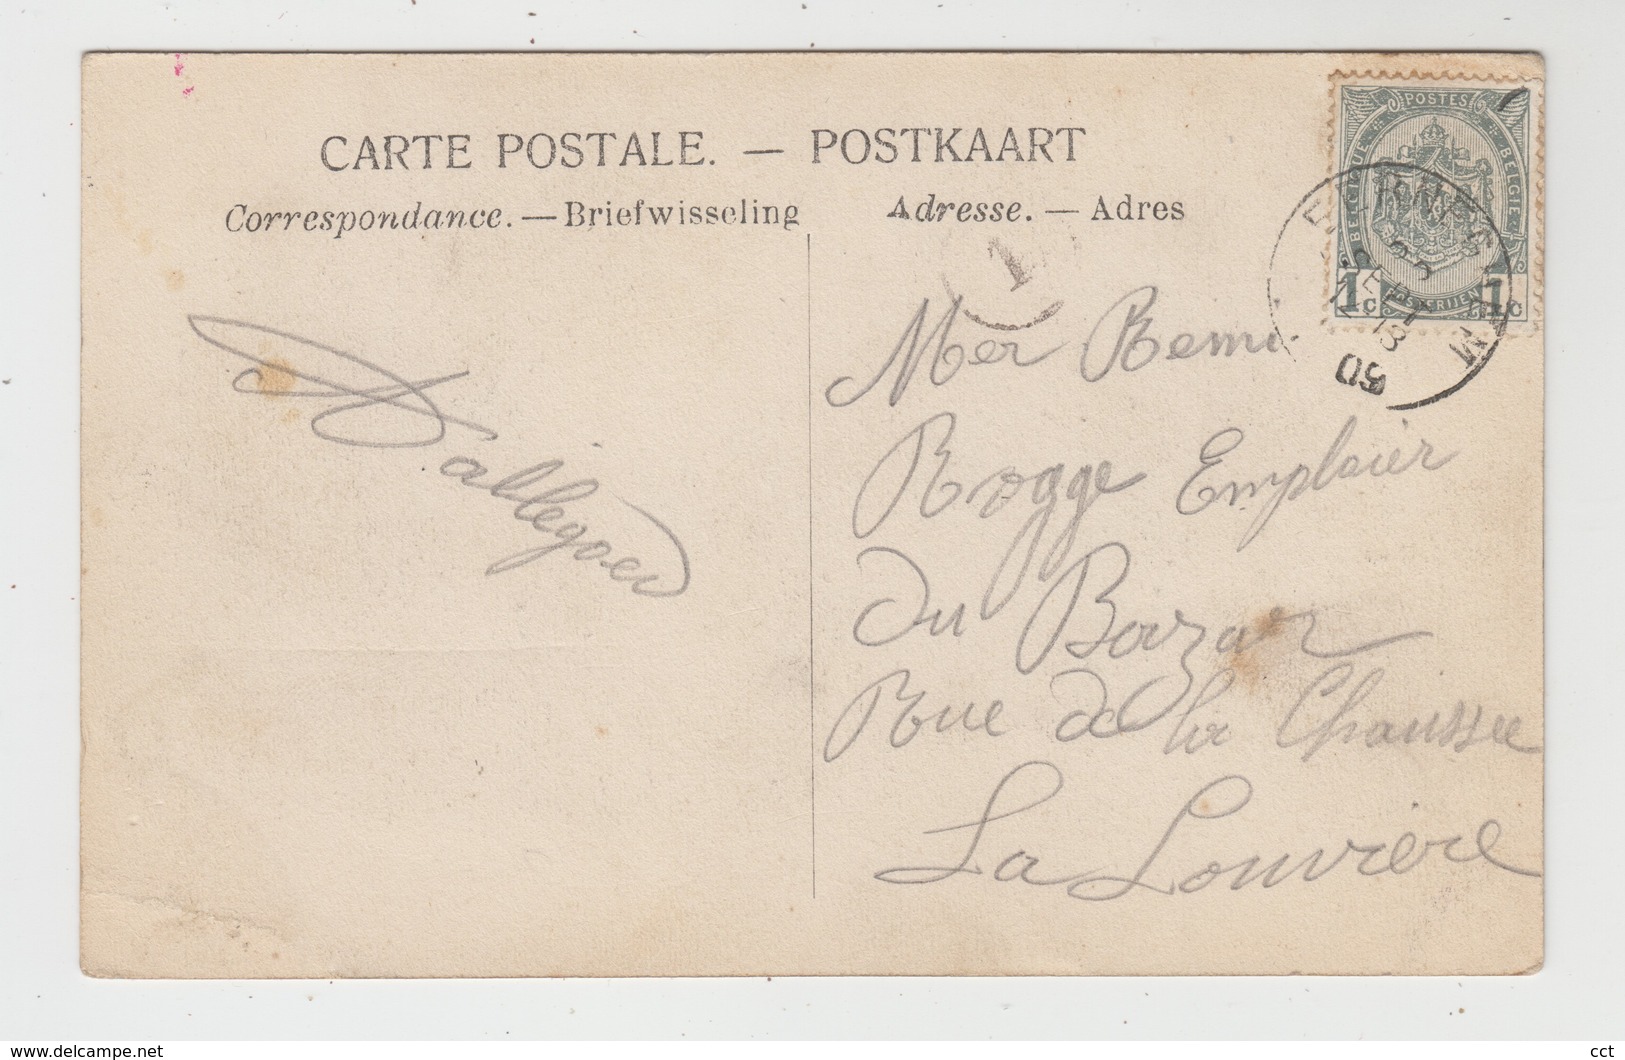 CARTE POSTALE. — POSTKAART
Correspondance. — Briefwisseling
Adresse. — Adres
POSTES
BELGIQUE
BELGIE
POSTERIJEN
1c
1c
1
SEPT
18
30
Mer Remi
Rogge Emploier
du Bazar
Rue de la Chaussee
La Louviere
cct
http://www.delcampe.net